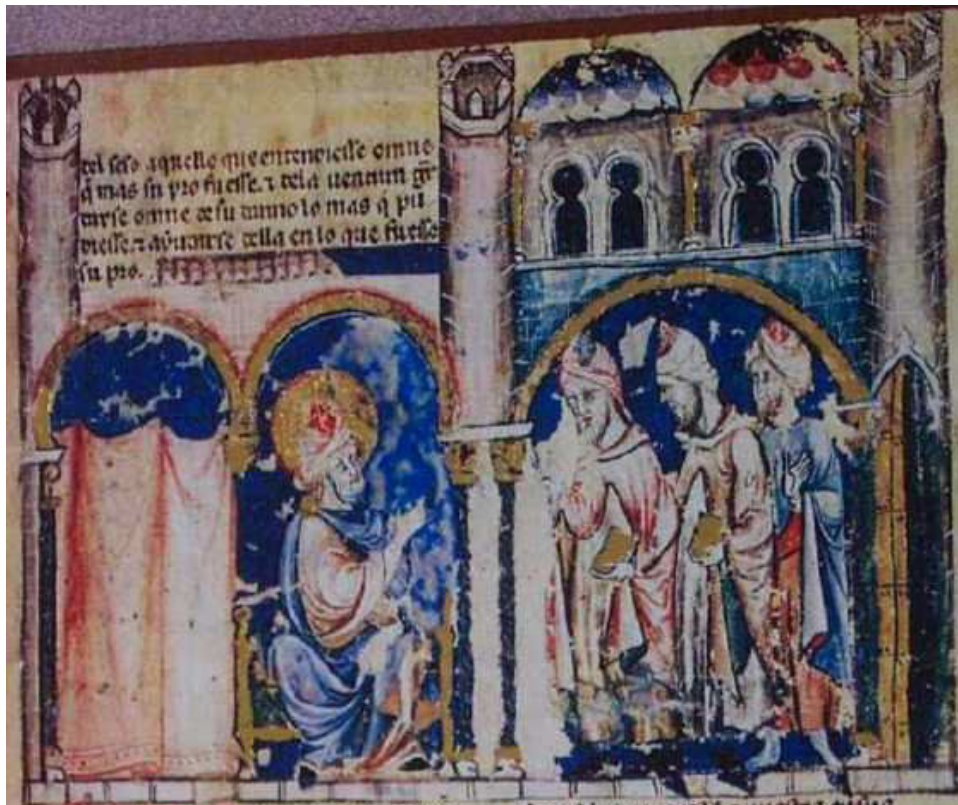 del seso aquello que entendiesse omne
q̃ mas su pro fuesse. ⁊ dela uentura gũ
darse omne de su danno lo mas q̃ pu
diesse. ⁊ ayudarse della en lo que fuesse
su pro.